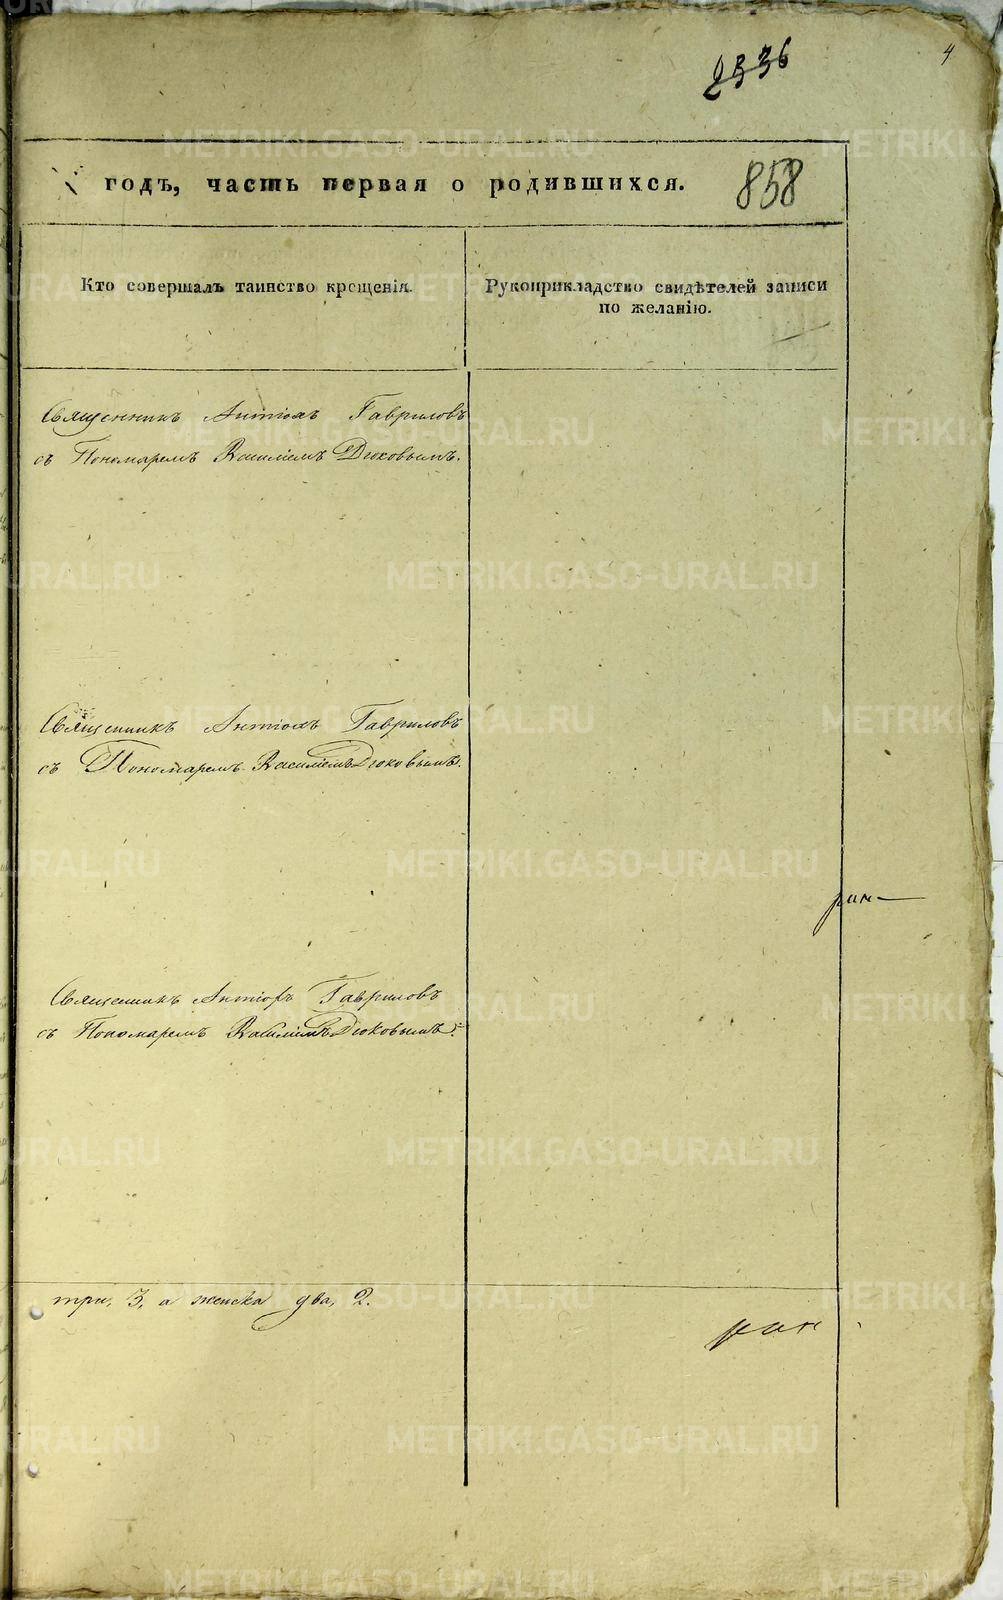 2336
4
годъ, часть первая о родившихся.
858
Кто совершалъ таинство крещенія.
Рукоприкладство свидѣтелей записи
по желанію.
Священникъ Антіохъ Гавриловъ
съ Пономаремъ Василіемъ Дюковымъ.
Священникъ Антіохъ Гавриловъ
съ Пономаремъ Василіемъ Дюковымъ.
Священникъ Антіохъ Гавриловъ
съ Пономаремъ Василіемъ Дюковымъ.
три, 3, а женска два, 2.
METRIKI.GASO-URAL.RU